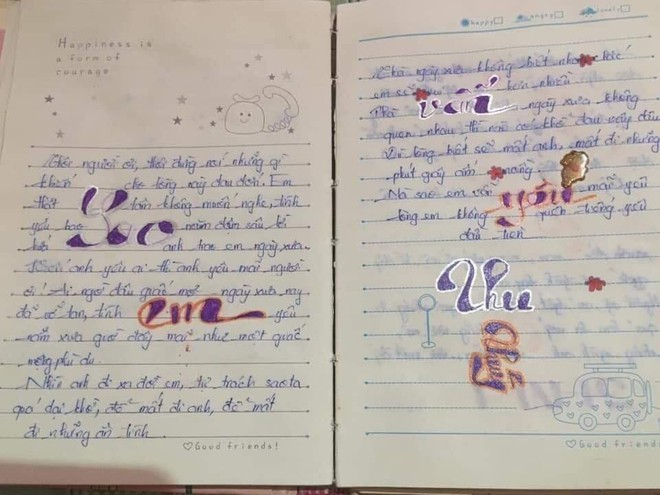 Happiness is
a form of
courage
Thôi người ơi, thôi đừng nói những gì
khiến cho lòng này đau đớn. Em
thật không muốn nghe, tình
yêu bao năm đậm sâu, lời
hứa anh trao em ngày xưa.
anh yêu ai thì anh yêu mãi người
ơi! Ai ngờ đâu giấc mơ ngày xưa nay
đã vỡ tan, tình em yêu
năm xưa giờ đây mãi như một giấc
mộng phù du.
Nhìn anh đi xa đời em, tự trách sao ta
quá dại khờ, để mất đi anh, để mất
đi những ân tình.
Good friends!
happy angry lovely
Thà ngày xưa không biết nhau chắc
em sẽ hơn nhiều
Thà vẫn ngày xưa không
quen nhau thì nay có khổ đau vậy đâu
Dù lòng biết sẽ mất anh, mất đi những
phút giây ấm nồng.
Mà sao em vẫn yêu mãi yêu
lòng em không quên tiếng yêu
đầu tiên
Thu
Good friends!